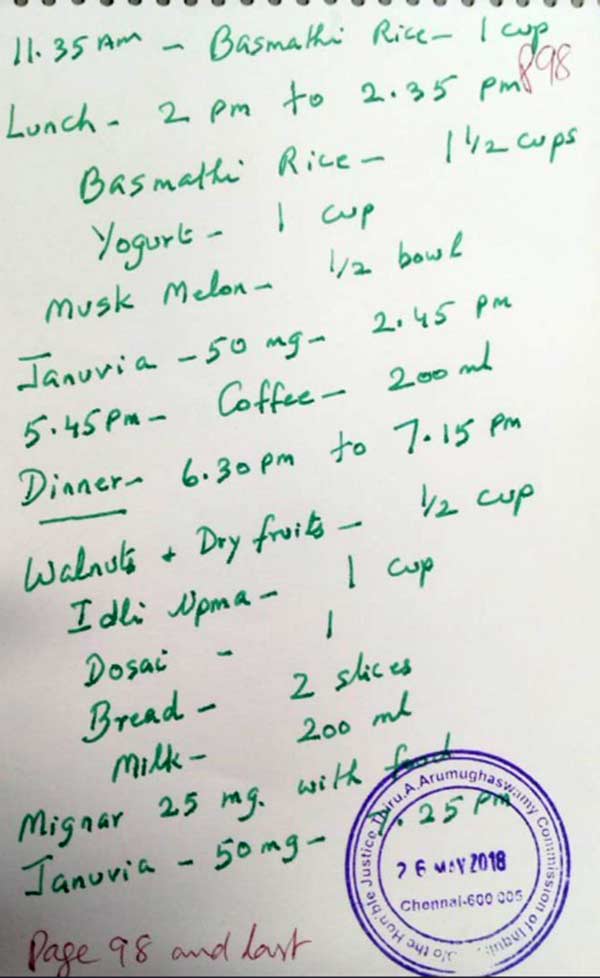 11.35 Am - Basmathi Rice - 1 cup
P98
Lunch - 2 pm to 2.35 pm
Basmathi Rice - 1 1/2 cups
Yogurt - 1 cup
Musk Melon - 1/2 bowl
Januvia - 50 mg - 2.45 pm
5.45 pm - Coffee - 200 ml
Dinner - 6.30 pm to 7.15 pm
Walnuts + Dry fruits - 1/2 cup
Idli Upma - 1 cup
Dosai - 1
Bread - 2 slices
Milk - 200 ml
Mignar 25 mg. with food
Januvia - 50 mg - 7.25 pm
o/o the Hon'ble Justice Thiru.A.Arumughaswamy Commission of Inquiry
26 MAY 2018
Chennai-600 005
Page 98 and last